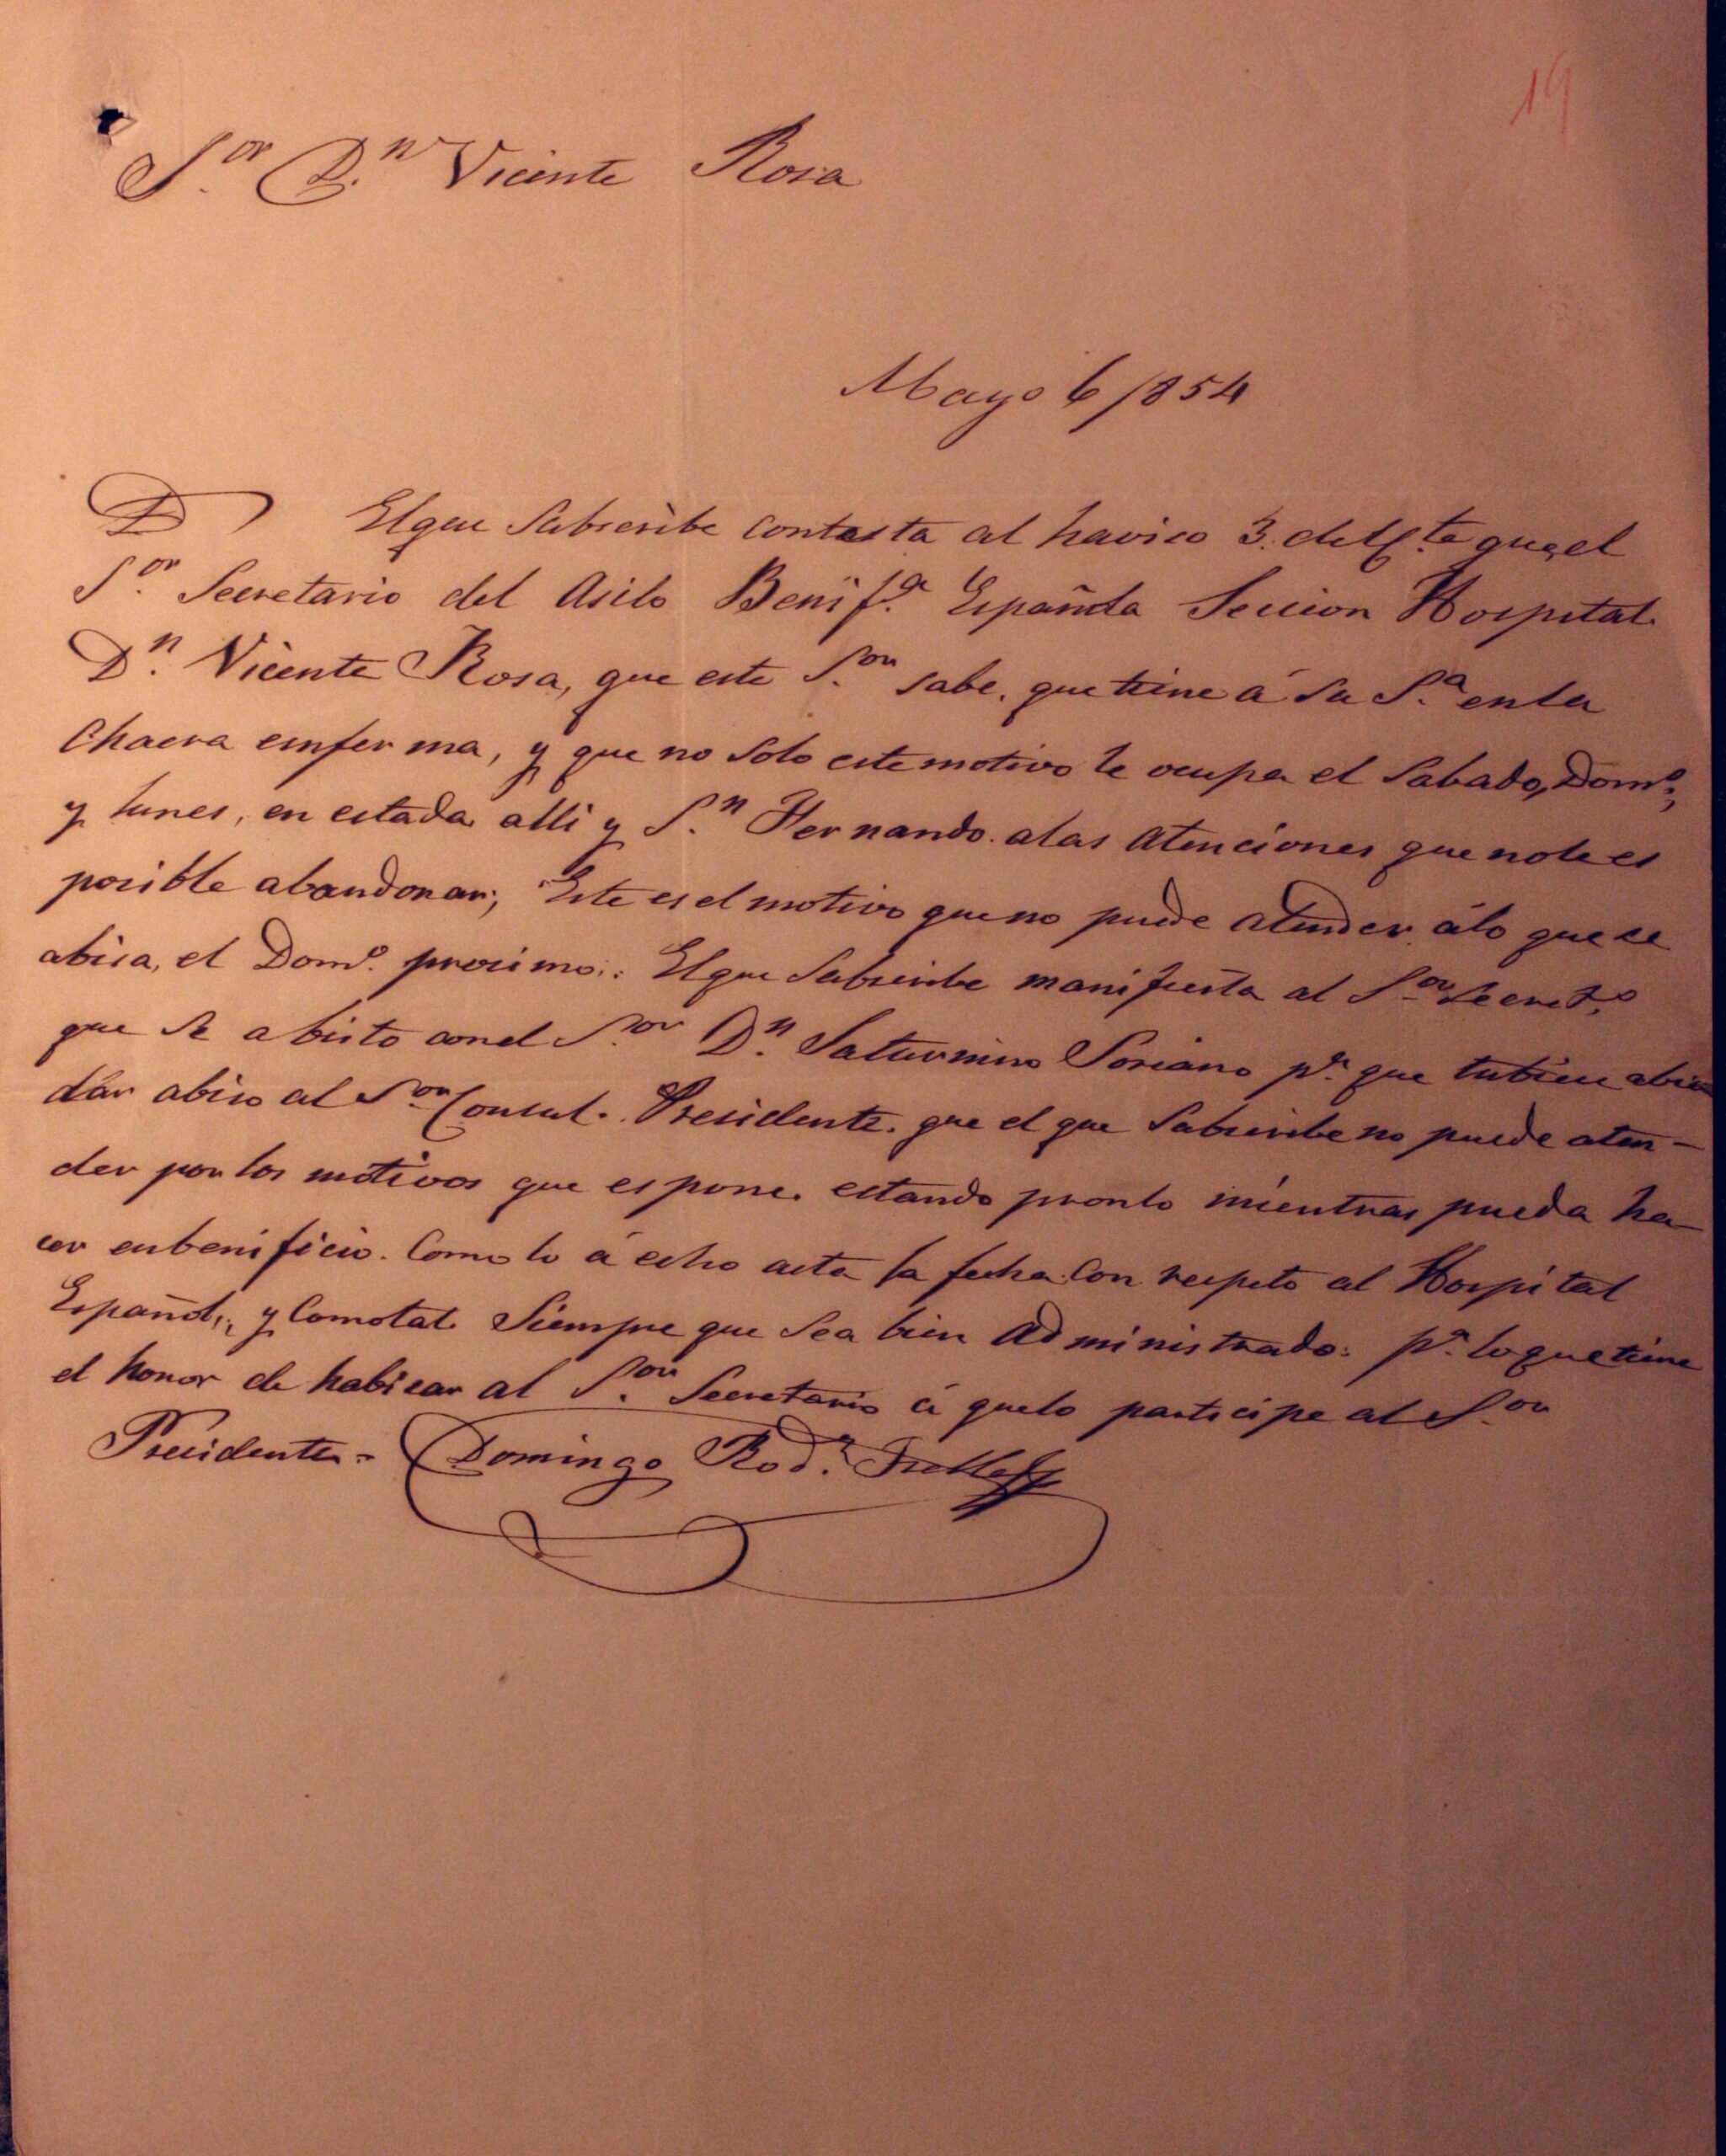 19
S.or D.n Vicente Rosa
Mayo 6/854
El que Subscribe contesta al haviso 3. del que el
S.or Secretario del Asilo Benif.a Española Seccion Hospital
D.n Vicente Rosa, que este S.or sabe. que tiene á Su S.a en la
Chacra emferma, y que no Solo este motivo le ocupa el Sabado, Dom.o,
y lunes, en estada alli y S.n Fernando. a las atenciones que no le es
posible abandonar; Este es el motivo que no puede atender. álo que se
abisa, el Dom.o prosimo.. El que Subscribe manifiesta al S.or Secret.o
que Se a bisto con el S.or D.n Saturnino Soriano p.a que tubiese
dár abiso al S.or Consul. Presidente. que el que Subscribe no puede aten-
der por los motivos que espone. estando pronto mientras pueda ha-
cer en benificio. Como lo á echo asta la fecha. Con respeto al Hospital
Español; y Como tal. Siempre que Sea bien administrado: p.a lo que tiene
el honor de habisar al S.or Secretario á que lo participe al S.or
Presidente = Domingo Rod.z Trelles